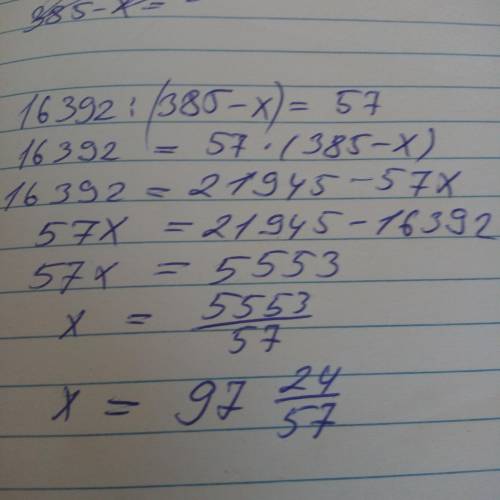 385-x=
16392:(385-x)= 57
16392 = 57·(385-x)
16392=21945-57x
57x =21945-16392
57x = 5553
x = 5553/57
x = 97 24/57